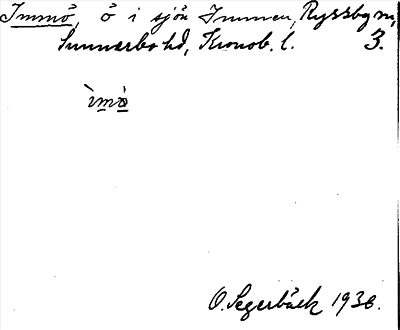 Immö, ö i sjön Immen, Ryssby sn,
Sunnerbo hd, Kronob. l. 3.
ìmö̀
O. Segerbäck 1936.